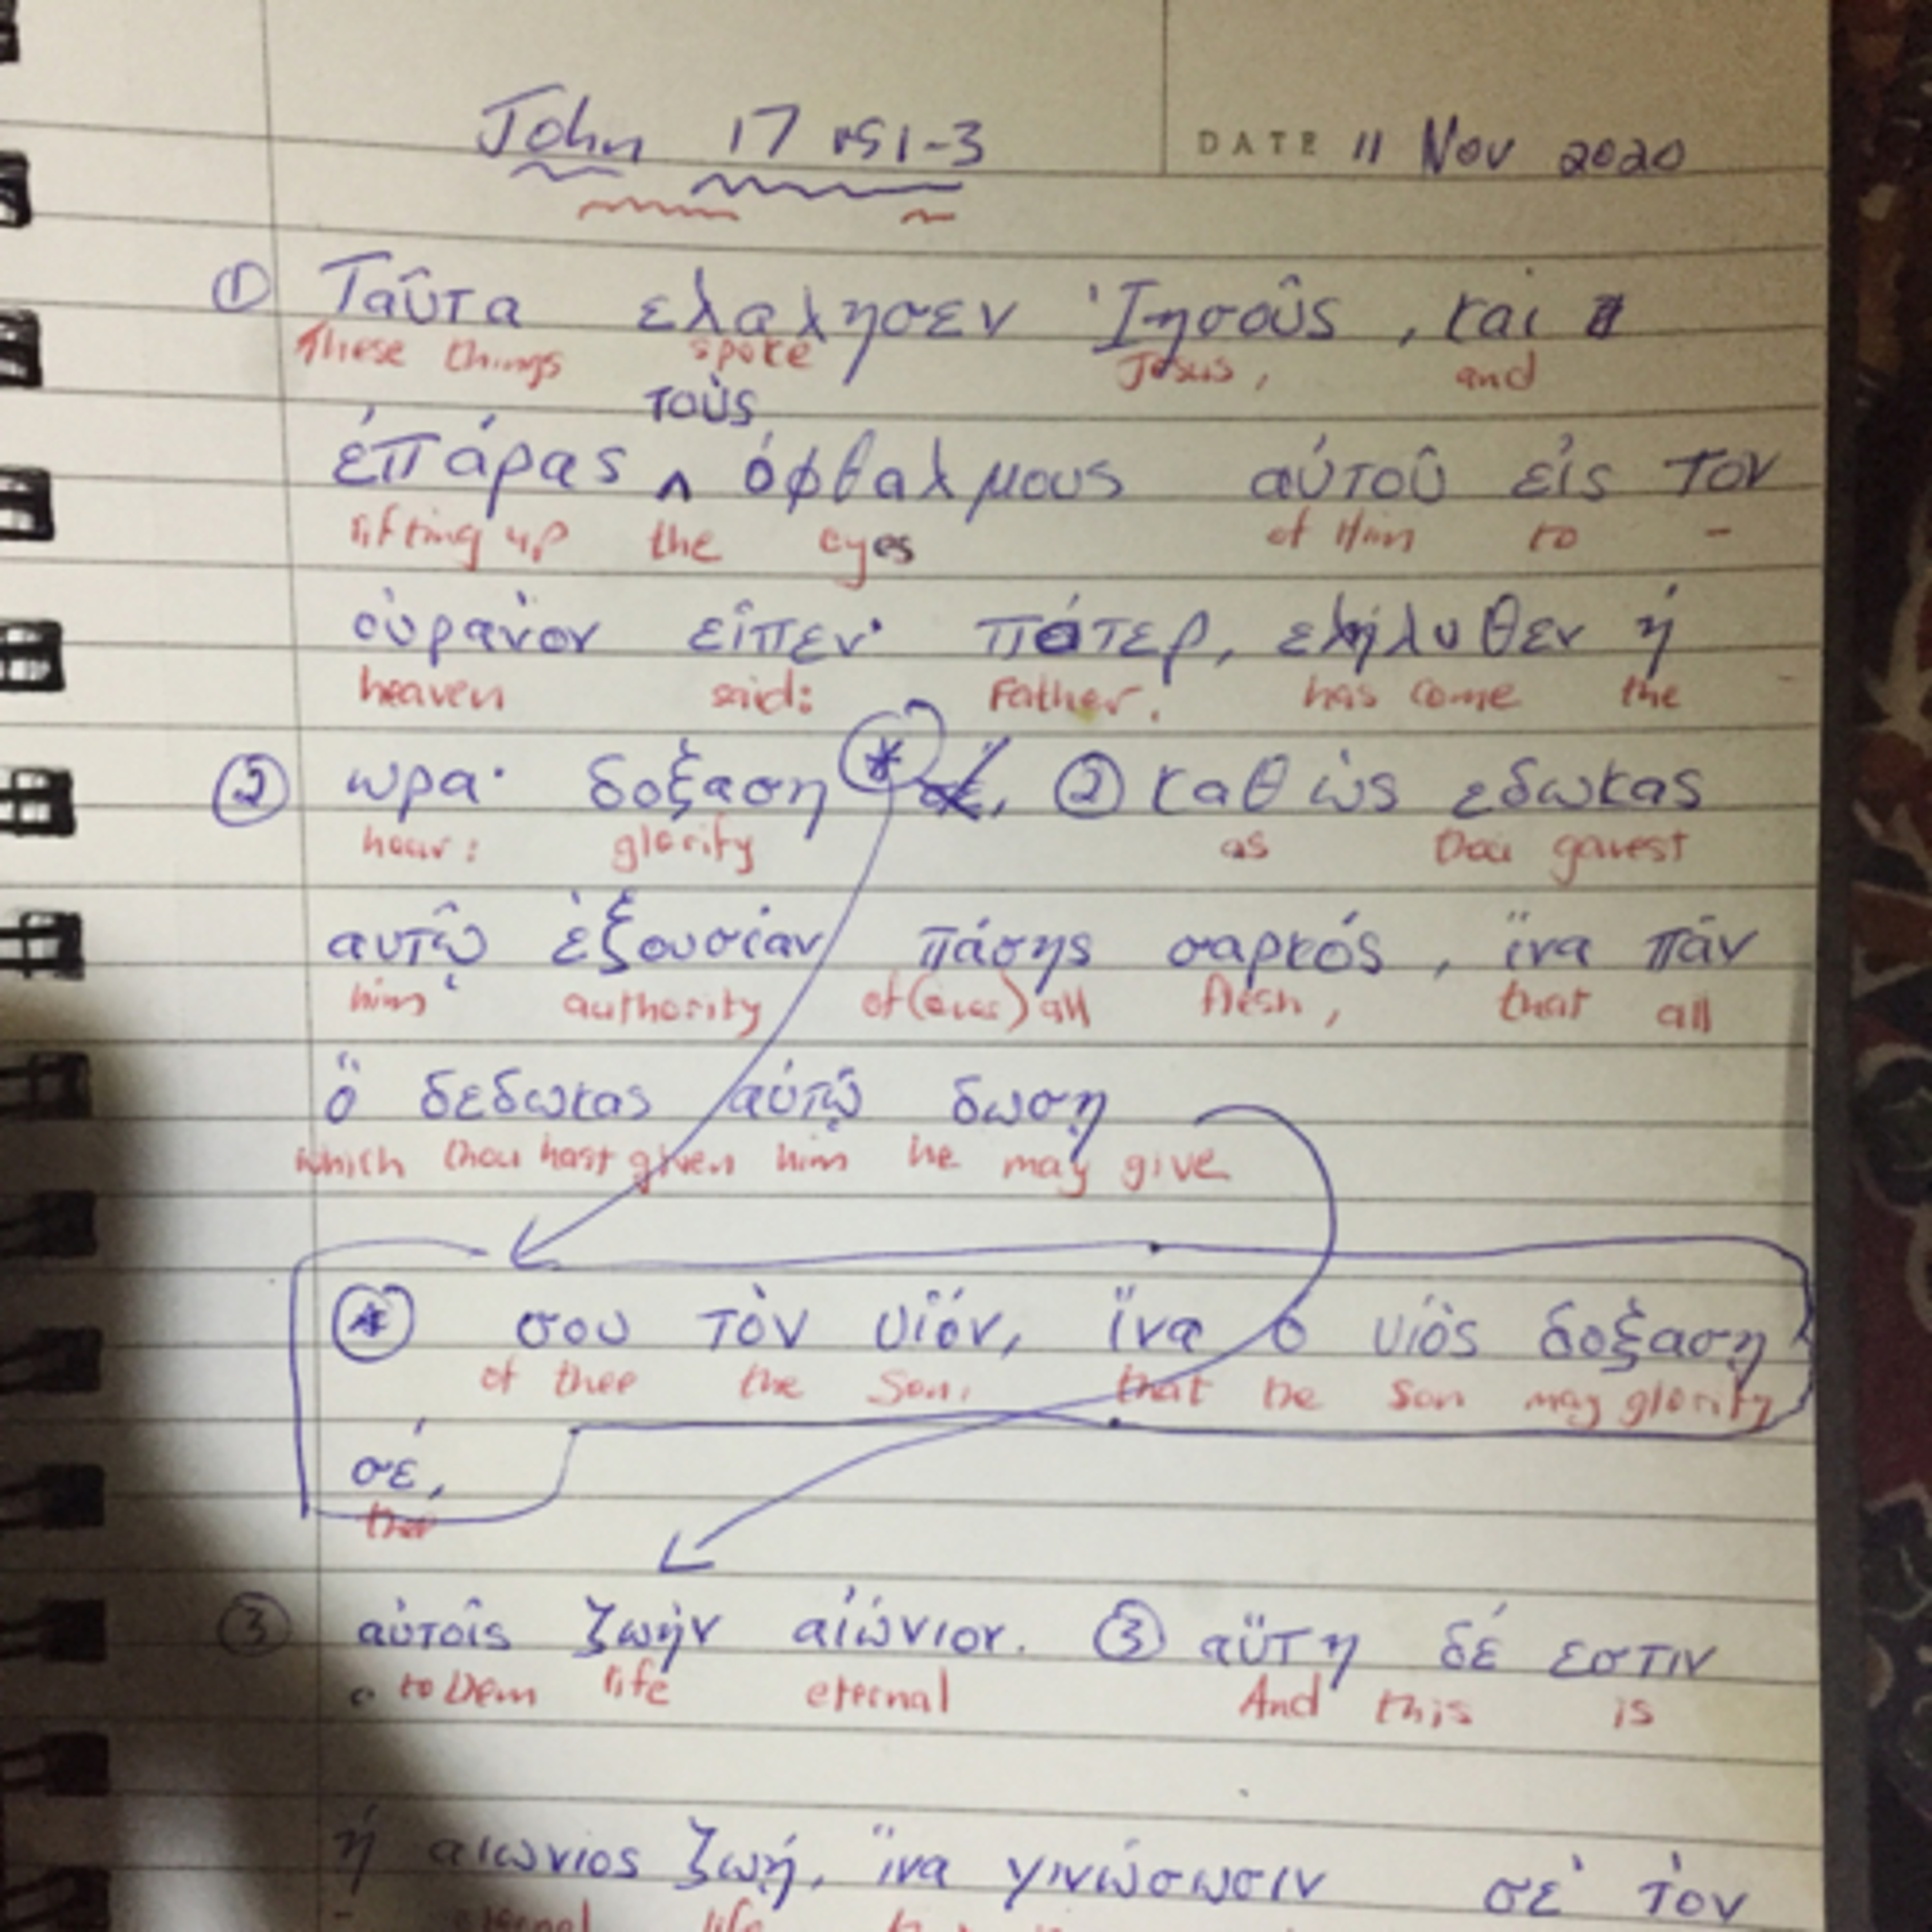 John 17 vs1-3
DATE 11 Nov 2020
① Ταῦτα ελαλησεν Ἰησοῦς, και
These things spoke Jesus, and
τοὺς
ἐπάρας ^ ὀφθαλμους αὐτοῦ εἰς τον
lifting up the eyes of Him to -
οὐρανὸν εἶπεν· πάτερ, ελήλυθεν ἡ
heaven said: Father, has come the
② ωρα· δοξαση * ② καθὼς εδωκας
hour: glorify as thou gavest
αυτῷ ἐξουσίαν πάσης σαρκός, ἵνα πᾶν
him authority of (over) all flesh, that all
ὃ δεδωκας αὐτῷ δωσῃ
which thou hast given him he may give
* σου τὸν υἱόν, ἵνα ὁ υἱὸς δοξασῃ
of thee the Son, that the Son may glorify
σέ,
thee
③ αὐτοῖς ζωὴν αἰώνιον. ③ αὕτη δέ εστιν
to them life eternal And this is
ἡ αιωνιος ζωή, ἵνα γινώσωσιν σὲ τὸν
- eternal life